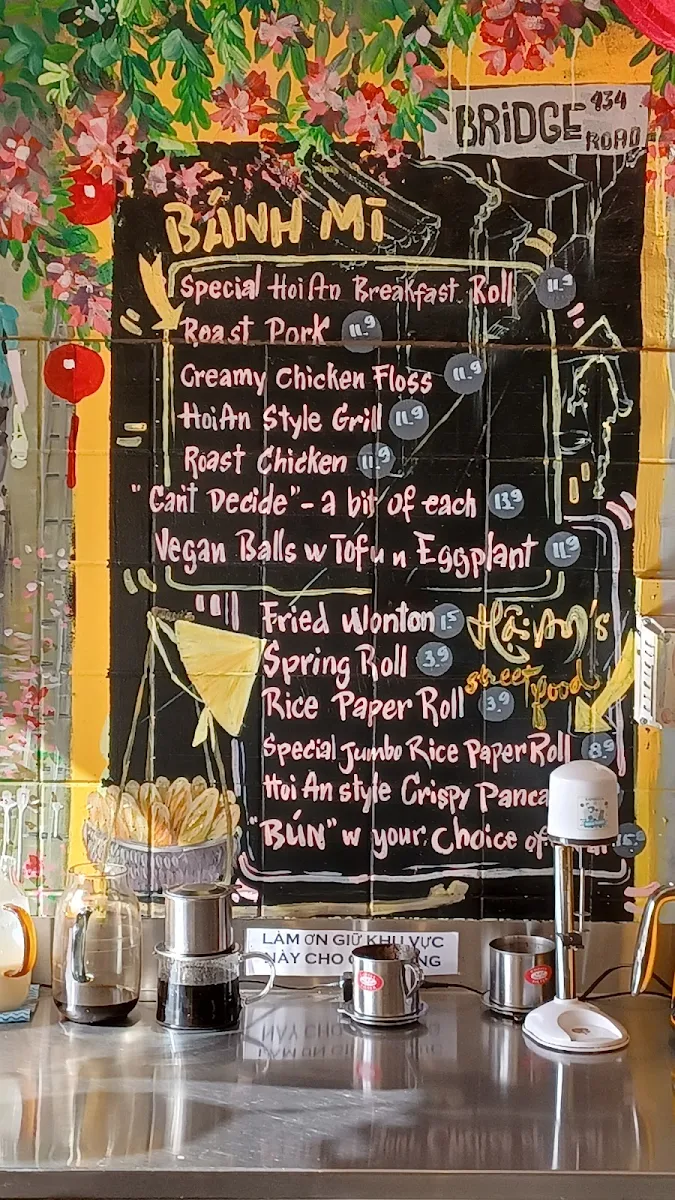 BRIDGE 434 ROAD
BÁNH MÌ
Special HoiAn Breakfast Roll 11.9
Roast Pork 11.9
Creamy Chicken Floss 11.9
HoiAn Style Grill 11.9
Roast Chicken 11.9
"Can't Decide" - a bit of each 13.9
Vegan Balls w Tofu n Eggplant 11.9
Fried Wonton 1.5
Spring Roll 3.9
Rice Paper Roll 3.9
Hội An's
street food
Special Jumbo Rice Paper Roll 8.9
Hoi An style Crispy
"BÚN" w your Choice of
LÀM ƠN GIỮ KHU VỰC
NÀY CHO